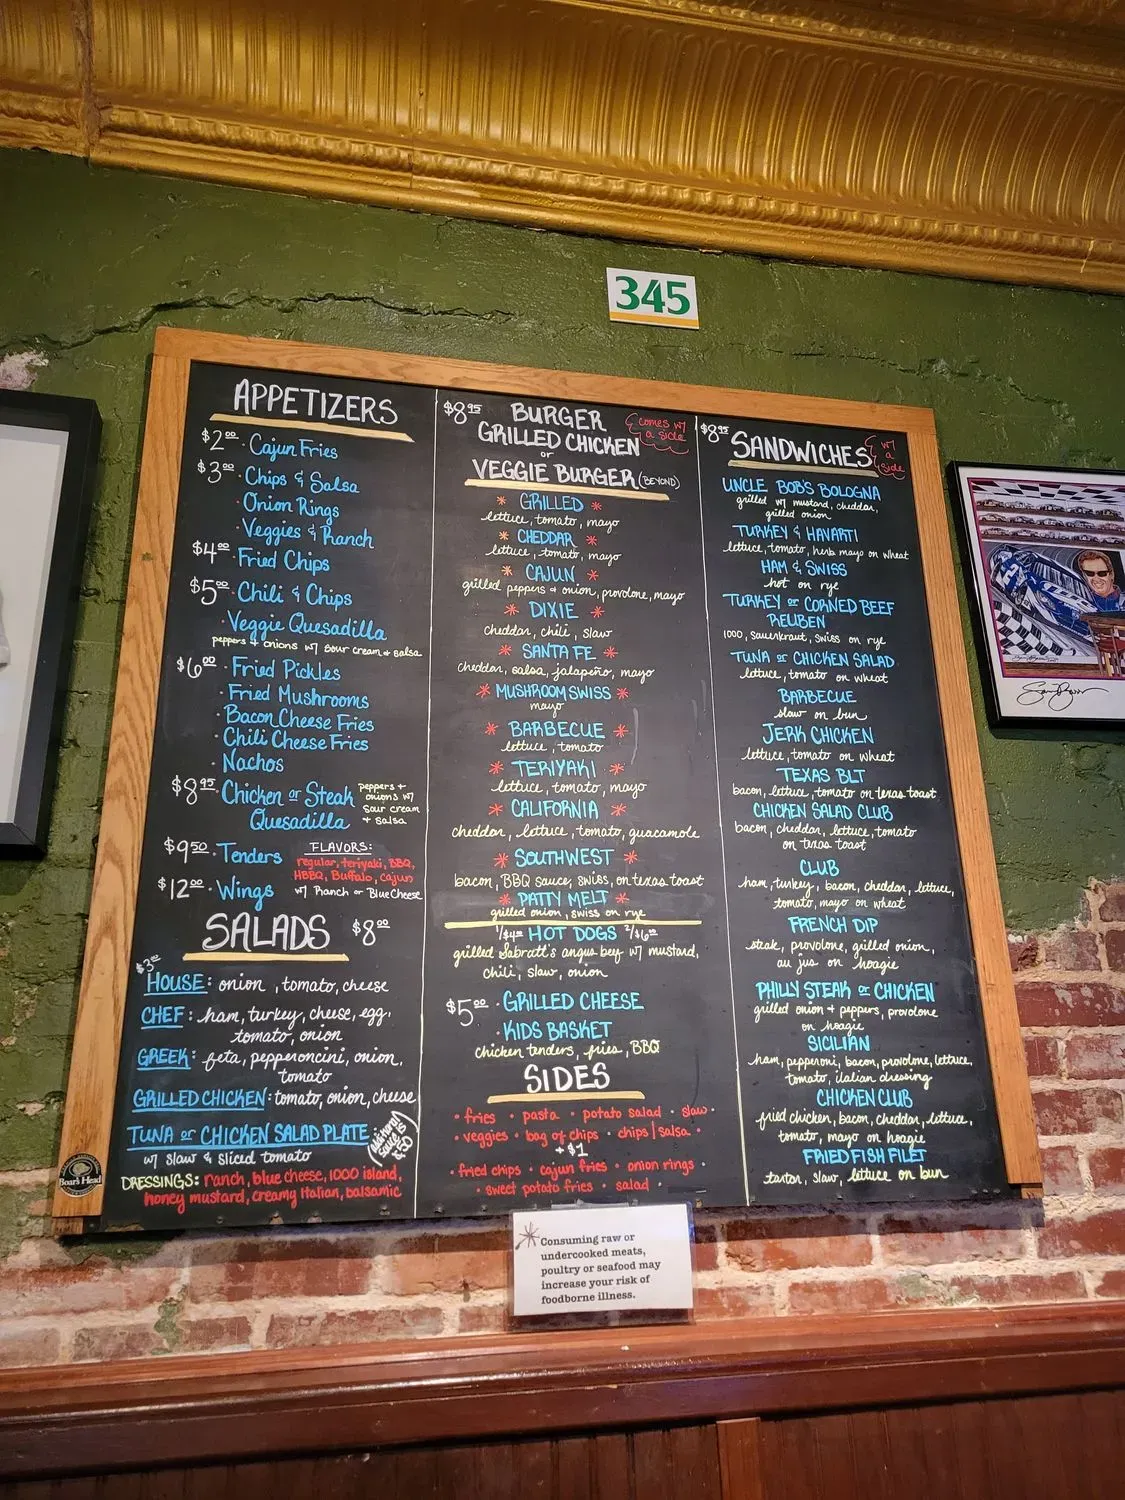 345
APPETIZERS
$2.00 · Cajun Fries
$3.00 · Chips & Salsa
· Onion Rings
· Veggies & Ranch
$4.00 · Fried Chips
$5.00 · Chili & Chips
· Veggie Quesadilla
peppers + onions w/ sour cream & salsa
$6.00 · Fried Pickles
· Fried Mushrooms
· Bacon Cheese Fries
· Chili Cheese Fries
· Nachos
$8.95 · Chicken or Steak
Quesadilla
peppers +
onions w/
sour cream
+ salsa
$9.50 · Tenders
$12.00 · Wings
FLAVORS:
regular, teriyaki, BBQ,
HBBQ, Buffalo, cajun
w/ Ranch or Blue Cheese
SALADS $8.00
$3.00
HOUSE: onion, tomato, cheese
CHEF: ham, turkey, cheese, egg,
tomato, onion
GREEK: feta, pepperoncini, onion,
tomato
GRILLED CHICKEN: tomato, onion, cheese
TUNA or CHICKEN SALAD PLATE
w/ slaw & sliced tomato
DRESSINGS: ranch, blue cheese, 1000 island,
honey mustard, creamy Italian, balsamic
Additional
sauce is
$.50
Boar's Head
$8.95 BURGER
GRILLED CHICKEN
or
VEGGIE BURGER (BEYOND)
comes w/
a side
* GRILLED *
lettuce, tomato, mayo
* CHEDDAR *
lettuce, tomato, mayo
* CAJUN *
grilled peppers & onion, provolone, mayo
* DIXIE *
cheddar, chili, slaw
* SANTA FE *
cheddar, salsa, jalapeño, mayo
* MUSHROOM SWISS *
mayo
* BARBECUE *
lettuce, tomato
* TERIYAKI *
lettuce, tomato, mayo
* CALIFORNIA *
cheddar, lettuce, tomato, guacamole
* SOUTHWEST *
bacon, BBQ sauce, swiss, on texas toast
* PATTY MELT *
grilled onion, swiss on rye
1/$4.00 HOT DOGS 2/$6.00
grilled Sabratt's angus beef w/ mustard,
chili, slaw, onion
$5.00 · GRILLED CHEESE
· KIDS BASKET
chicken tenders, fries, BBQ
SIDES
· fries · pasta · potato salad · slaw ·
· veggies · bag of chips · chips/salsa ·
+ $1
· fried chips · cajun fries · onion rings ·
· sweet potato fries · salad ·
$8.95 SANDWICHES
w/
a
side
UNCLE BOB'S BOLOGNA
grilled w/ mustard, cheddar,
grilled onion
TURKEY & HAVARTI
lettuce, tomato, herb mayo on wheat
HAM & SWISS
hot on rye
TURKEY or CORNED BEEF
REUBEN
1000, sauerkraut, swiss on rye
TUNA or CHICKEN SALAD
lettuce, tomato on wheat
BARBECUE
slaw on bun
JERK CHICKEN
lettuce, tomato on wheat
TEXAS BLT
bacon, lettuce, tomato on texas toast
CHICKEN SALAD CLUB
bacon, cheddar, lettuce, tomato
on texas toast
CLUB
ham, turkey, bacon, cheddar, lettuce,
tomato, mayo on wheat
FRENCH DIP
steak, provolone, grilled onion,
au jus on hoagie
PHILLY STEAK or CHICKEN
grilled onion + peppers, provolone
on hoagie
SICILIAN
ham, pepperoni, bacon, provolone, lettuce,
tomato, italian dressing
CHICKEN CLUB
fried chicken, bacon, cheddar, lettuce,
tomato, mayo on hoagie
FRIED FISH FILET
tartar, slaw, lettuce on bun
* Consuming raw or
undercooked meats,
poultry or seafood may
increase your risk of
foodborne illness.